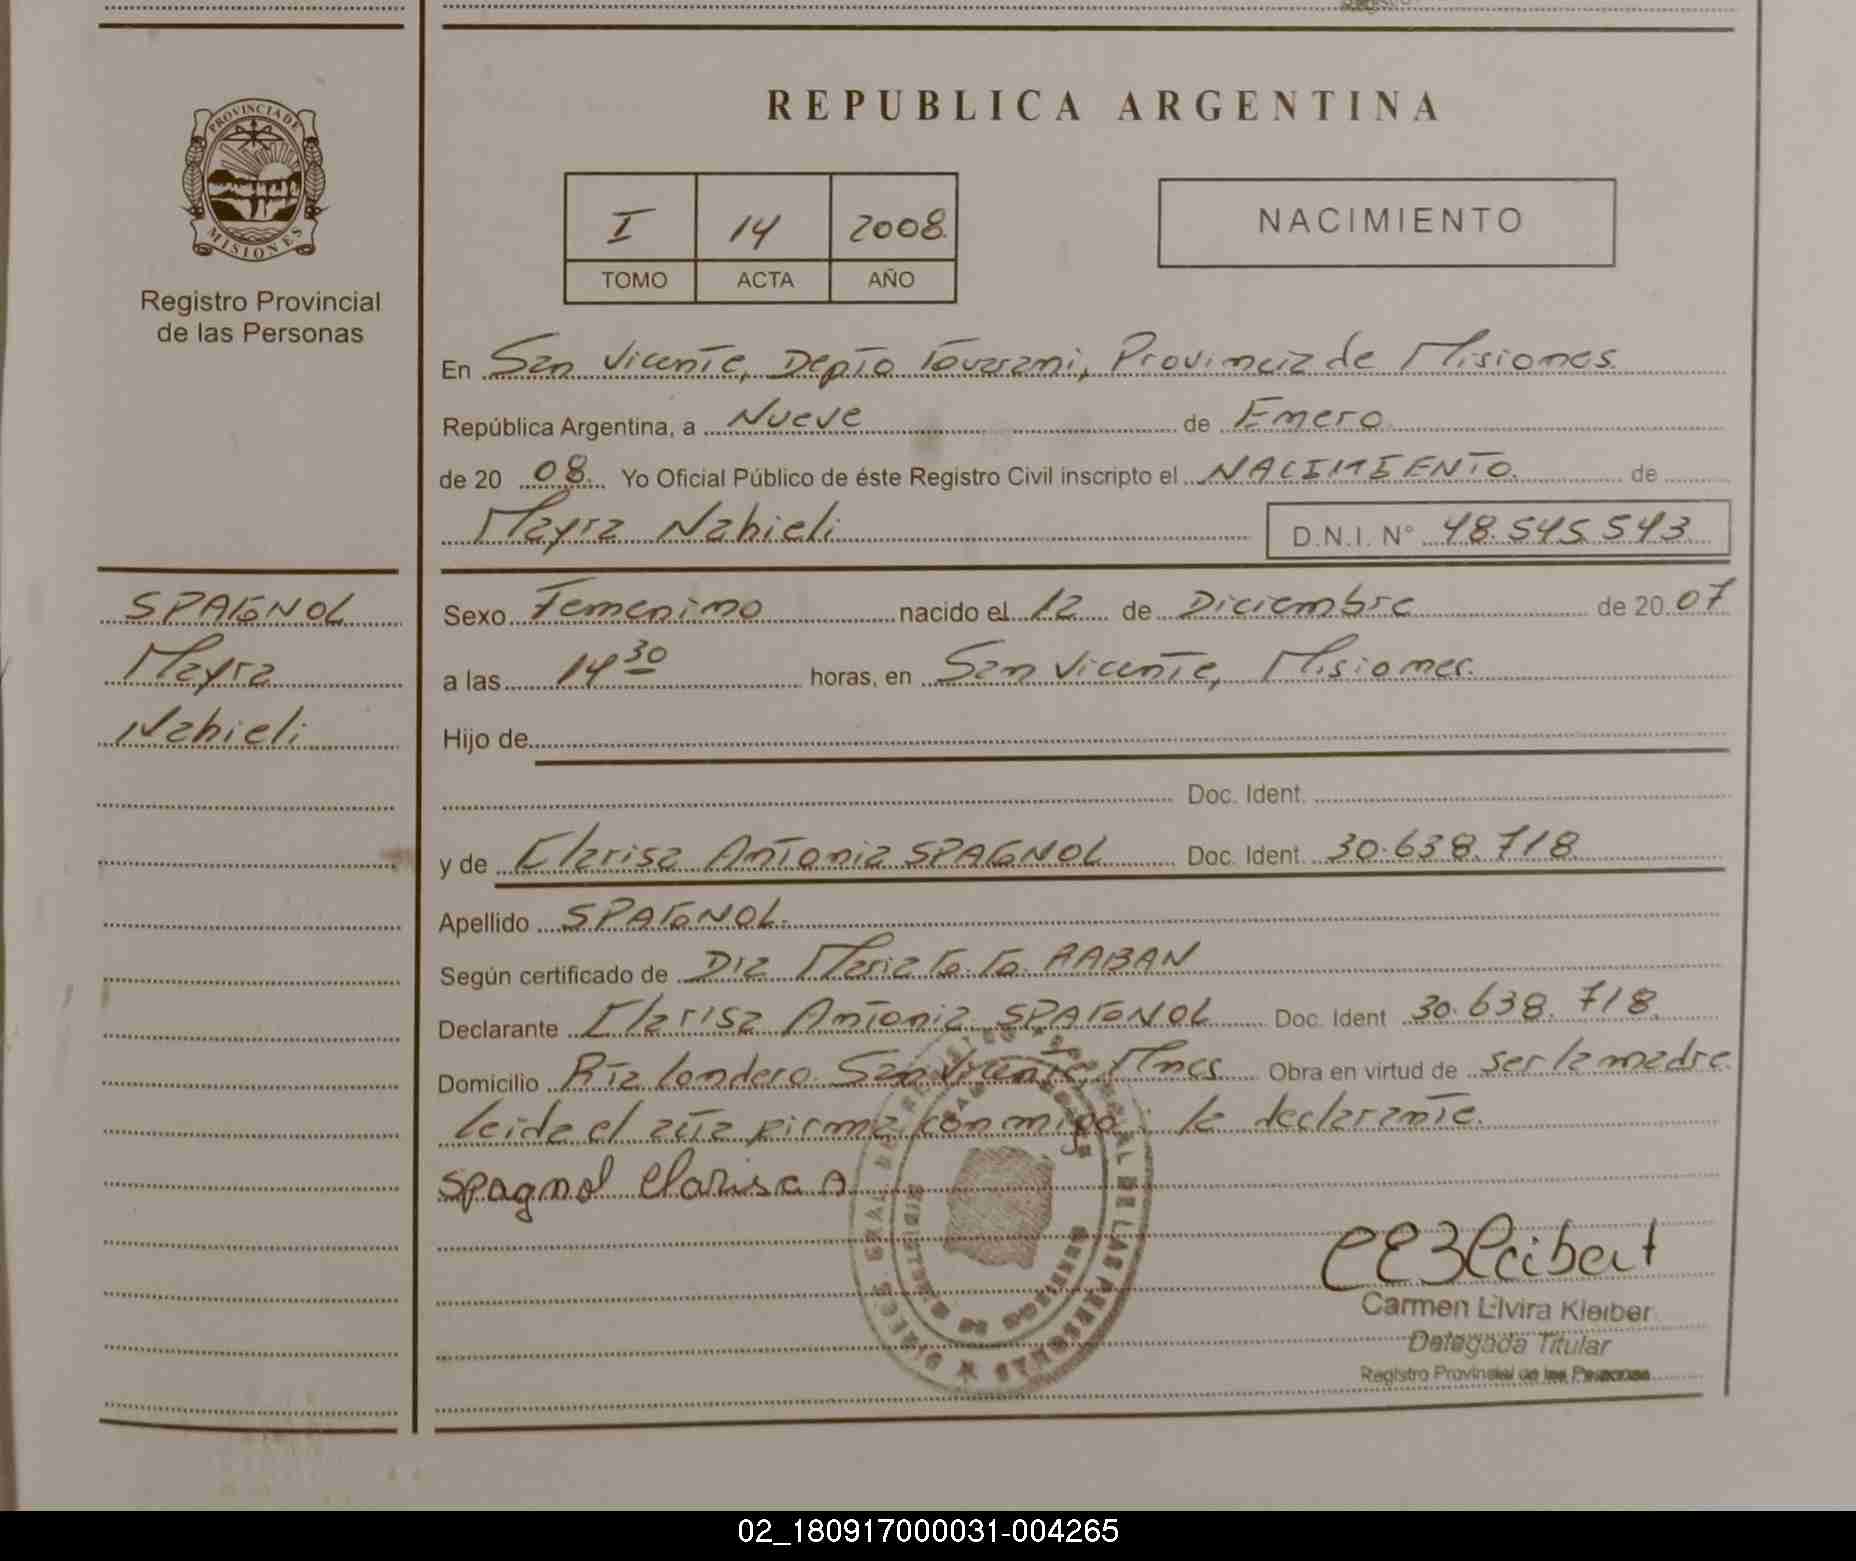 REPUBLICA ARGENTINA
PROVINCIA DE
MISIONES
Registro Provincial
de las Personas
I 14 2008
TOMO ACTA AÑO
NACIMIENTO
En San Vicente, Depto Guarani, Provincia de Misiones.
República Argentina, a Nueve de Enero
de 20 08. Yo Oficial Público de éste Registro Civil inscripto el NACIMIENTO. de
Mayra Nahieli D.N.I. N° 48.545.543
SPAGNOL
Mayra
Nahieli
Sexo Femenino nacido el 12 de Diciembre de 20 07
a las 14 30 horas, en San Vicente, Misiones.
Hijo de
Doc. Ident.
y de Clarisa Antonia SPAGNOL Doc. Ident. 30.638.718
Apellido SPAGNOL.
Según certificado de Dra Maria G. G. RABAN
Declarante Clarisa Antonia SPAGNOL Doc. Ident 30.638.718.
Domicilio Pta Londero San Vicente, Mnes Obra en virtud de ser la madre.
Leida el acta firma conmigo: la declarante.
Spagnol Clarisa A
Carmen Elvira Kleiber
Delegada Titular
Registro Provincial de las Personas
02_180917000031-004265